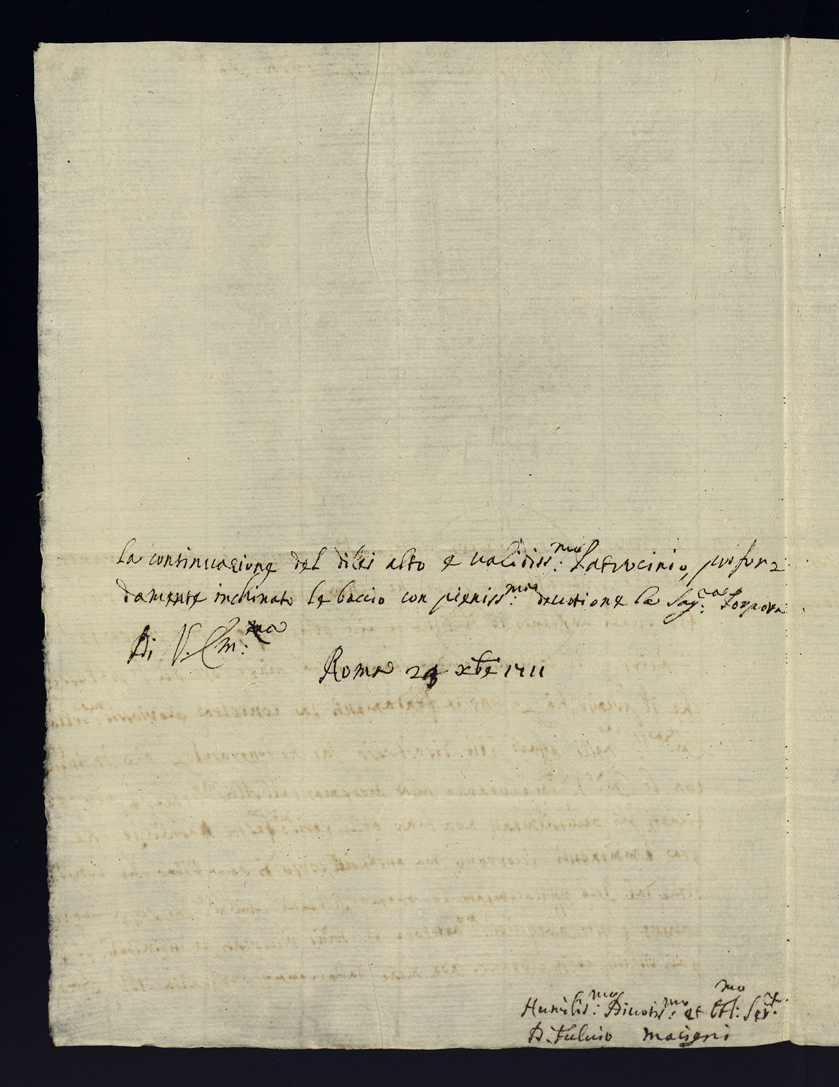 la continuazione del di lei alto e validiss:mo Patrocinio, profon=
damente inchinato le baccio con pieniss:ma devotione la Sag:ra Porpora
Di V. Em:za
Roma 23 xbre 1711
Humilis:mo Divotis:mo et Obl:mo Ser:e
D. Fulvio